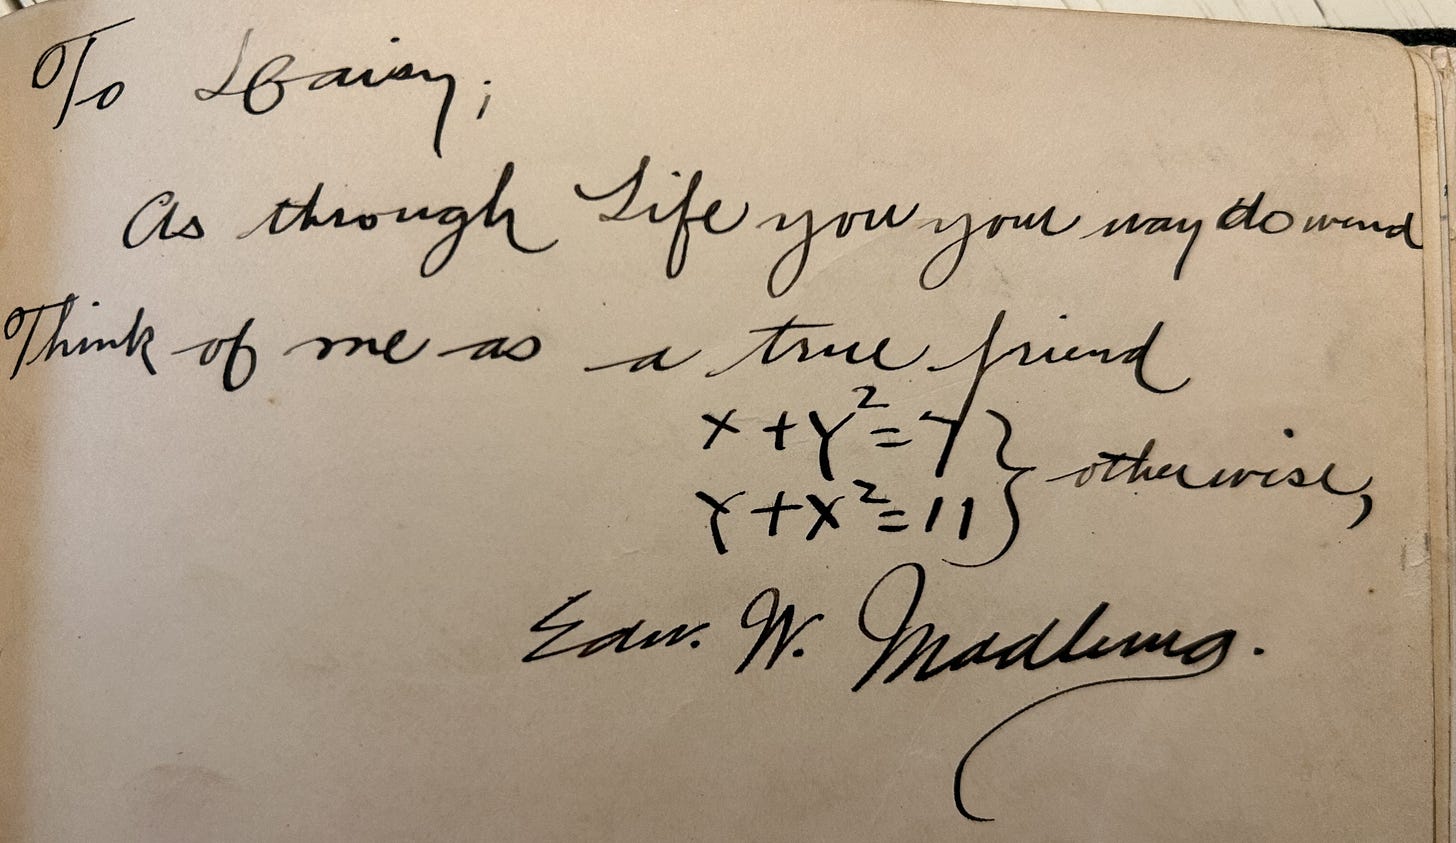 To Daisy;
As through Life you your way do wend
Think of me as a true friend
x + y² = 7 } otherwise,
y + x² = 11
Edw. W.